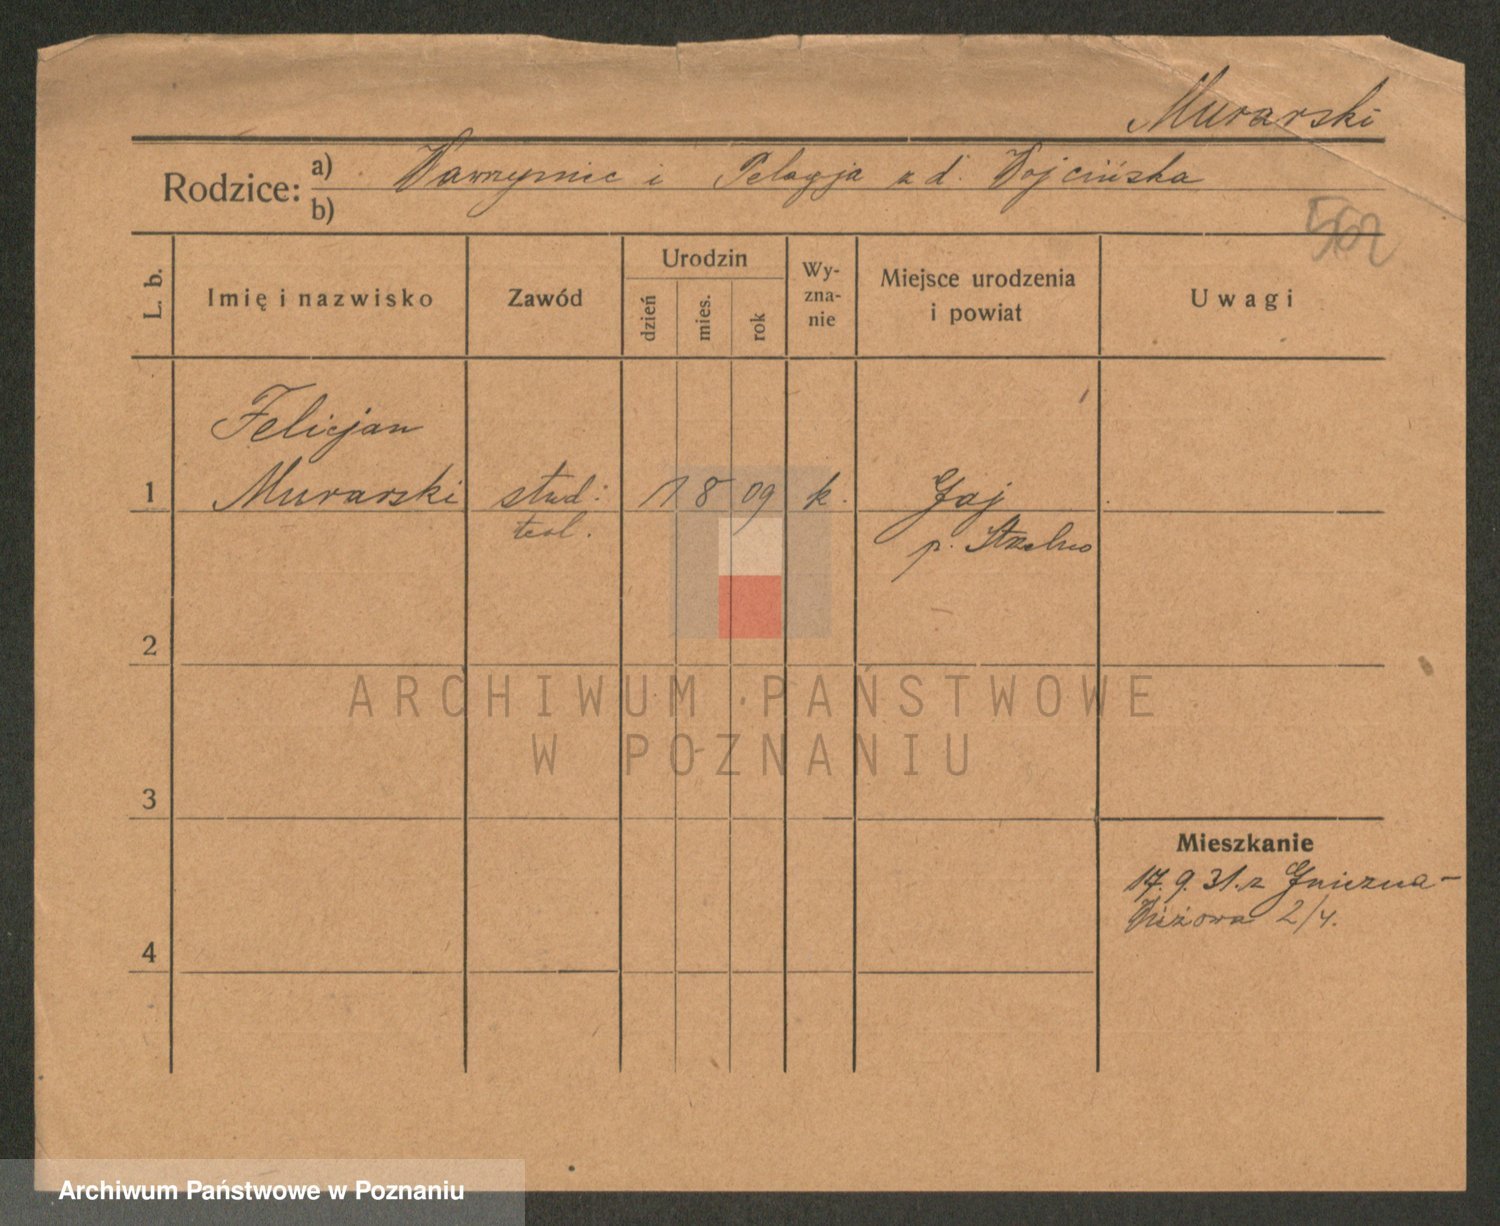 Murarski
Rodzice: a) Wawrzyniec i Pelagja z d. Wojcińska
b)
562
L. b.
Imię i nazwisko
Zawód
Urodzin
dzień
mies.
rok
Wy-
zna-
nie
Miejsce urodzenia
i powiat
Uwagi
Felicjan
1 Murarski stud. 1 8 09 k. Gaj
teol. p. Strzelno
2
3
4
Mieszkanie
17.9.31. z Gniezna-
2/4.
ARCHIWUM PAŃSTWOWE
W POZNANIU
Archiwum Państwowe w Poznaniu